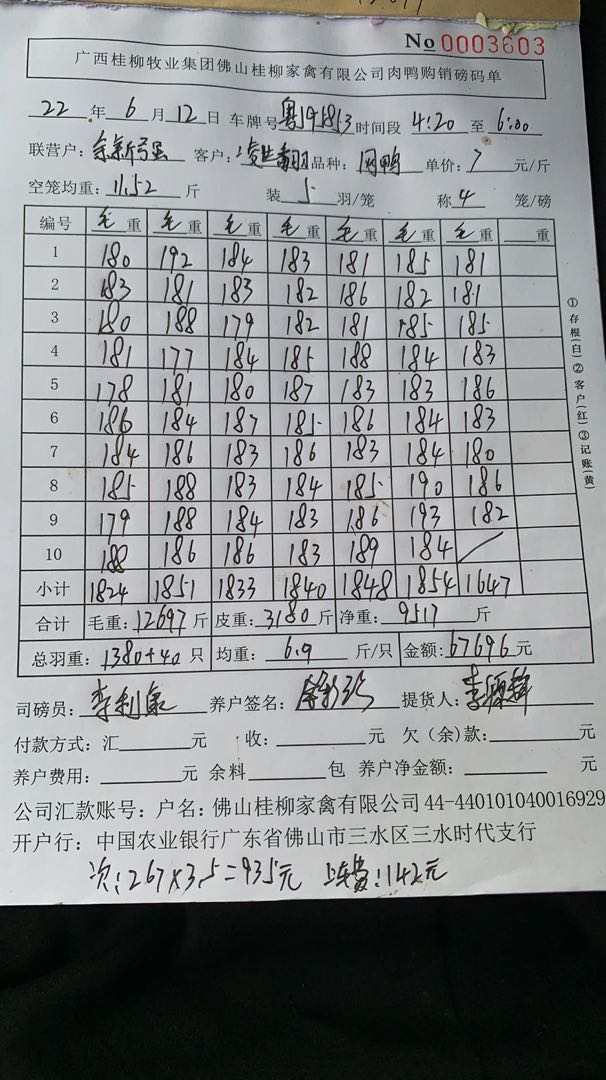 No 0003603
广西桂柳牧业集团佛山桂柳家禽有限公司肉鸭购销磅码单
22 年 6 月 12 日 车牌号 时间段 4:20 至 6:00
联营户: 客户: 品种: 单价: 7 元/斤
空笼均重: 11.52 斤 装 5 羽/笼 称 4 笼/磅
编号 毛重 毛重 毛重 毛重 毛重 毛重 毛重 重
1 180 192 184 183 181 185 181
2 183 181 183 182 186 182 181
3 180 188 179 182 181 185 185
4 181 177 184 185 188 184 183
5 178 181 180 187 183 183 186
6 186 184 187 185 186 184 183
7 184 186 183 186 183 184 180
8 185 188 183 184 185 190 186
9 179 188 184 183 186 193 182
10 188 186 186 183 189 184
小计 1824 1851 1833 1840 1848 1854 1647
合计 毛重: 12697 斤 皮重: 3180 斤 净重: 9517 斤
总羽重: 1380+40 只 均重: 6.9 斤/只 金额: 67696 元
司磅员: 李利泉 养户签名: 提货人:
付款方式: 汇 元 收: 元 欠(余)款: 元
养户费用: 元 余料 包 养户净金额: 元
公司汇款账号: 户名: 佛山桂柳家禽有限公司 44-440101040016929
开户行: 中国农业银行广东省佛山市三水区三水时代支行
次: 267×3.5=935元 上车费: 142元
①存根(白)②客户(红)③记账(黄)